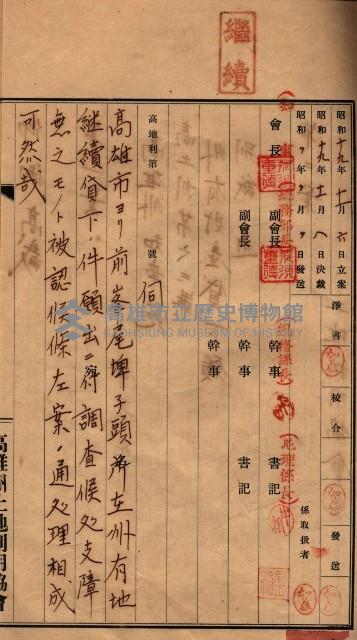 繼續
昭和十九年十一月六日立案
昭和十九年十一月八日決裁
昭和 年 月 日發送
淨書
校合
發送
係取扱者
會長
副會長
幹事
書記
副會長
幹事
書記
幹事
高地利第 號
伺
高雄市ヨリ前峯尾埤子頭濟在州有地
繼續貸下ノ件願出ニ付調查候処支障
無之モノト被認候條左案ノ通処理相成
可然哉
高雄州土地利用協會
高雄市立歷史博物館
KAOHSIUNG MUSEUM OF HISTORY